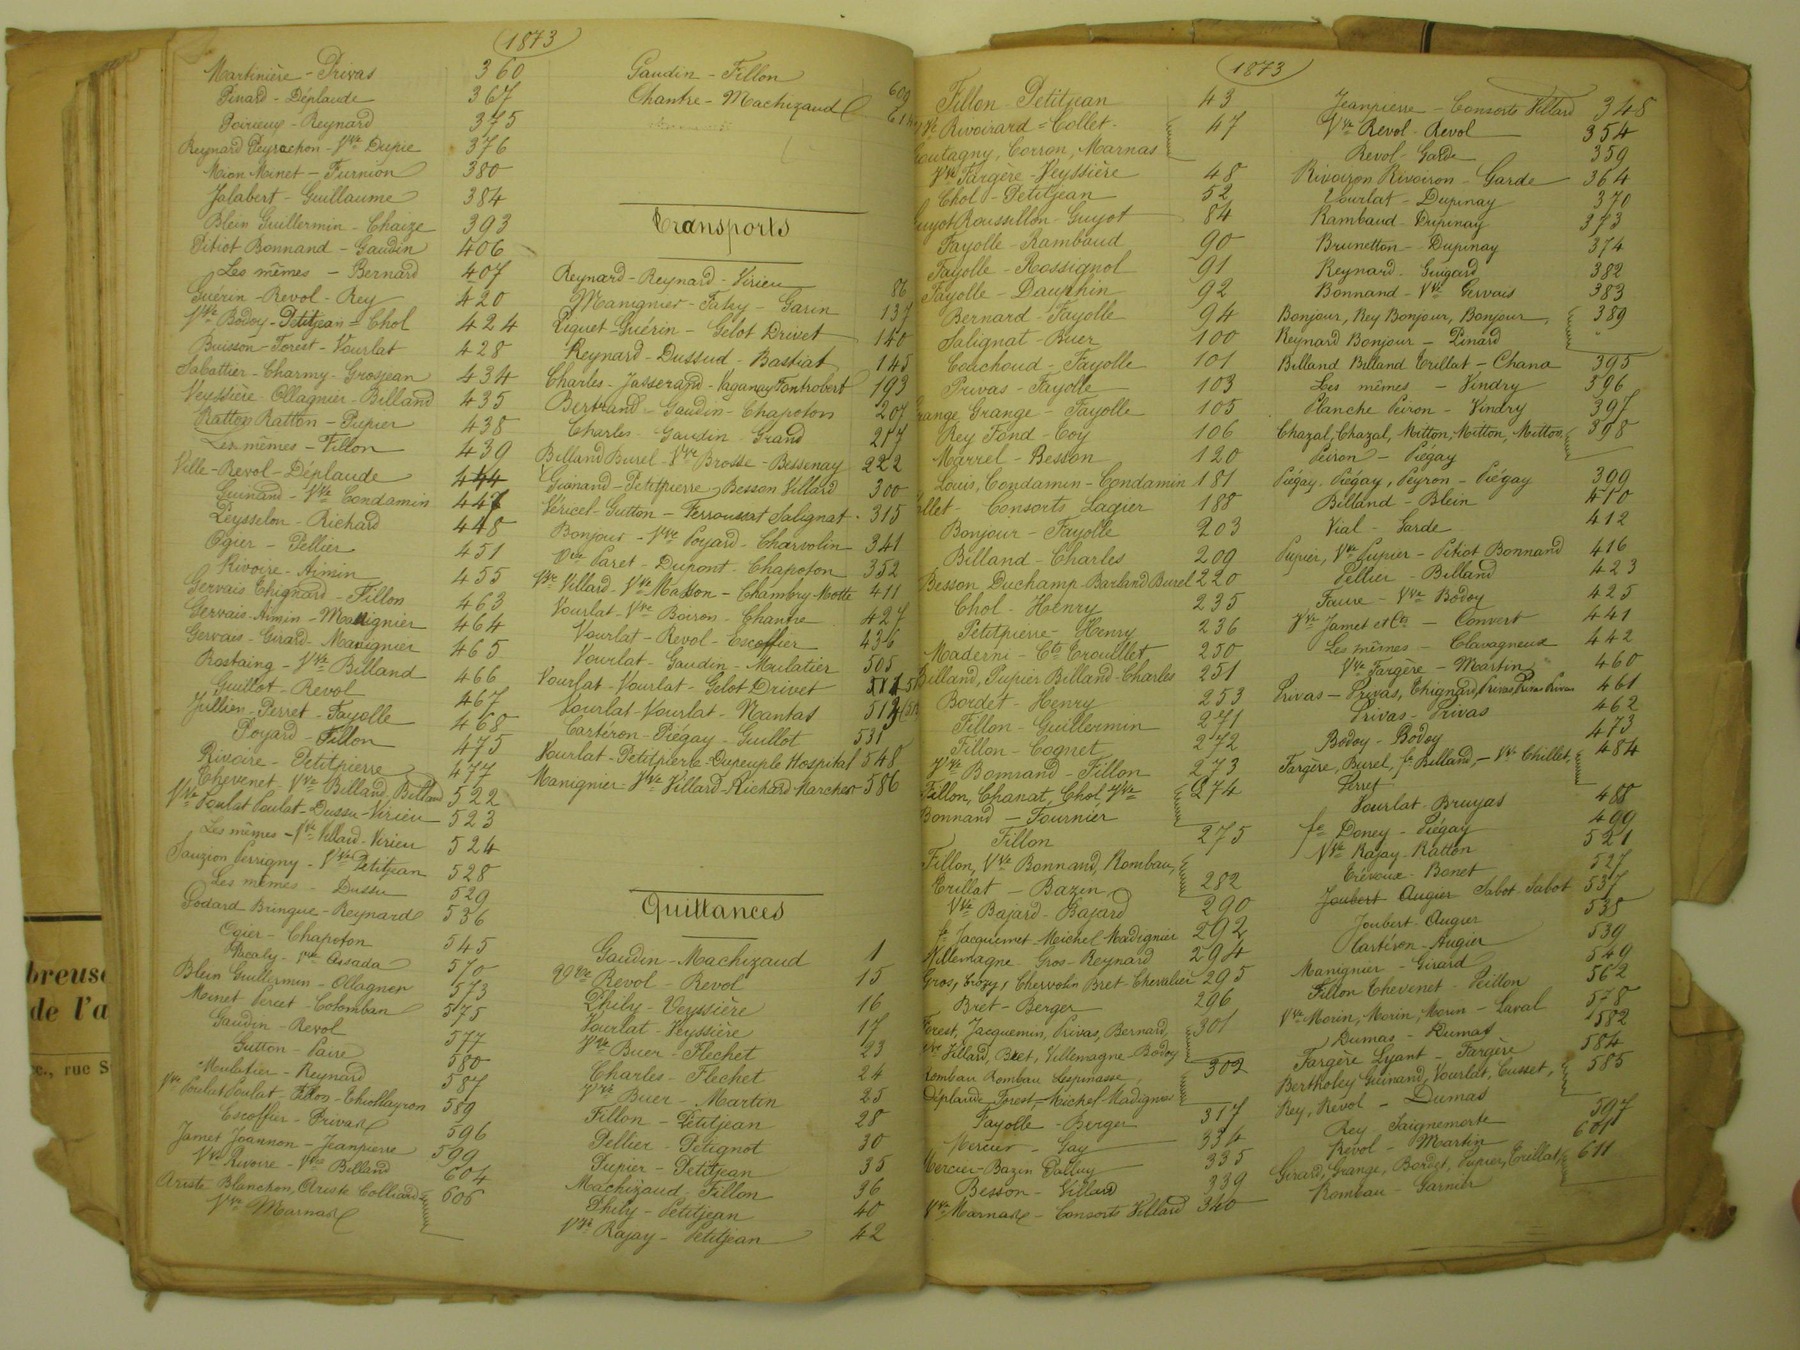 1873
Martinière - Privas 360
Pinard - Déplaude 367
Poirieux - Reynard 375
Reynard Peyrachon - Vve Dupie 376
Mion Minet - Furnion 380
Jalabert - Guillaume 384
Blein Guillermin - Chaize 393
Pitiot Bonnand - Gaudin 406
Les mêmes - Bernard 407
Guérin - Revol - Rey 420
Vve Bodoy - Petitjean - Chol 424
Buisson - Forest - Vourlat 428
Sabattier - Charmy - Grosjean 434
Veyssière Ollagnier - Billand 435
Ratton Ratton - Pupier 438
Les mêmes - Fillon 439
Ville - Revol - Déplaude 444
Guinand - Vve Condamin 447
Peysselon - Richard 448
Ogier - Pellier 451
Rivoire - Aimin 455
Gervais Thignard - Fillon 463
Gervais - Aimin - Manignier 464
Gervais - Girard - Manignier 465
Rostaing - Vve Billand 466
Guillot - Revol 467
Jullien - Perret - Fayolle 468
Poyard - Fillon 475
Rivoire - Petitpierre 477
Thevenet, Vve Billand, Billand 522
Vve Poulat Poulat - Dussu - Virieu 523
Les mêmes - Vve Villard - Virieu 524
Sauzion Perrigny - Vve Petitjean 528
Les mêmes - Dussu 529
Godard Bringue - Reynard 536
Ogier - Chapoton 545
Pacaly - Vve Assada 570
Blein Guillermin - Ollagner 573
Minet Percet - Colomban 575
Gaudin - Revol 577
Gutton - Paire 580
Moulatier - Reynard 587
Vve Poulat Poulat - Thiollayron 589
Escoffier - Privas 596
Jamet Joannon - Jeanpierre 599
Vve Rivoire - Vve Billand 604
Ariste Blanchon, Ariste Colliard 606
Vve Marnas
Gaudin - Fillon 609
Chantre - Machizaud
Transports
Reynard - Reynard - Virieu 86
Manignier - Fahy - Garin 137
Piquet - Guérin - Gelot Drivet 140
Reynard - Dussud - Bastiat 145
Charles - Jasserand - Vaganay Fontrobert 193
Bertrand - Gaudin - Chapoton 207
Charles - Gaudin - Grand 217
Billand Burel - Vve Brosse - Bessenay 222
Guinand - Petitpierre, Besson Villard 300
Véricel - Gutton - Ferroussat Salignat 315
Bonjour - Vve Poyard - Charvolin 341
Vve Paret - Dupont - Chapoton 352
Vve Villard - Vve Masson - Chambry Motte 411
Vourlat - Vve Boiron - Chantre 427
Vourlat - Revol - Escoffier 436
Vourlat - Gaudin - Moulatier 505
Vourlat - Vourlat - Gelot Drivet 511
Vourlat - Vourlat - Nantas 513
Cartéron - Piégay - Guillot 531
Vourlat - Petitpierre - Dupeuple Hospital 548
Manignier - Vve Villard - Richard Marchon 586
Quittances
Gaudin - Machizaud 1
Revol - Revol 15
Phily - Veyssière 16
Vourlat - Veyssière 17
Vve Buer - Flechet 23
Charles - Flechet 24
Vve Buer - Martin 25
Fillon - Petitjean 28
Pellier - Petignot 30
Pupier - Petitjean 35
Machizaud - Fillon 36
Phily - Petitjean 40
Vve Rajay - Petitjean 42
1873
Fillon - Petitjean 43
Vve Rivoirard - Collet - 47
Coutagny, Corron, Marnas
Vve Fargère - Veyssière 48
Chol - Petitjean 52
Guyot Roussillon - Guyot 84
Fayolle - Rambaud 90
Fayolle - Rossignol 91
Fayolle - Dauphin 92
Bernard - Fayolle 94
Salignat - Buer 100
Couchoud - Fayolle 101
Privas - Fayolle 103
Grange Grange - Fayolle 105
Rey Fond - Coy 106
Marrel - Besson 120
Louis, Condamin - Condamin 181
Collet - Consorts Lagier 188
Bonjour - Fayolle 203
Billand - Charles 209
Besson Duchamp - Barland Burel 220
Chol - Henry 235
Petitpierre - Henry 236
Maderni - Cts Trouillet 250
Billand, Pupier Billand - Charles 251
Bordet - Henry 253
Fillon - Guillermin 271
Fillon - Cognet 272
Vve Bonnand - Fillon 273
Fillon, Chanat, Chol, Vve 274
Bonnand - Fournier
Fillon 275
Fillon, Vve Bonnand, Rombau, 282
Trillat - Bazin
Vve Bajard - Bajard 290
fe Jacquemet - Michel Madignier 292
Villemagne - Gros - Reynard 294
Gros, Grozy, Chervolin Bret - Chevalier 295
Bret - Berger 296
Forest, Jacquemin, Privas, Bernard, 301
Vve Villard, Bret, Villemagne - Bodoy
Rombau Rombau Lespinasse, 302
Déplaude, Forest - Michel - Madignier
Fayolle - Berger 317
Mercier - Gay 334
Mercier - Bazin Palluy 335
Besson - Villard 339
Vve Marnas - Consorts Villard 340
Jeanpierre - Consorts Villard 348
Vve Revol - Revol 354
Revol - Garde 359
Rivoiron Rivoiron - Garde 364
Vourlat - Dupinay 370
Rambaud - Dupinay 373
Brunetton - Dupinay 374
Reynard - Guigard 382
Bonnand - Vve Gervais 383
Bonjour, Rey Bonjour, Bonjour, 389
Reynard Bonjour - Pinard "
Billand Billand Trillat - Chana 395
Les mêmes - Vindry 396
Planche Peiron - Vindry 397
Chazal, Chazal, Mitton, Mitton, Mitton 398
Peiron - Piégay
Piégay, Piégay, Peyron - Piégay 399
Billand - Blein 410
Vial - Garde 412
Pupier, Vve Pupier - Pitiot Bonnand 416
Pellier - Billand 423
Faure - Vve Bodoy 425
Vve Jamet et Cts - Convert 441
Les mêmes - Clavagneux 442
Vve Fargère - Martin 460
Privas - Privas, Thignard, Privas Privas Privas 461
Privas - Privas 462
Bodoy - Bodoy 473
Fargère, Burel, fe Billand, - Vve Chillet, 484
Perret
Vourlat - Bruyas 488
fe Doney - Piégay 499
Vve Rajay - Ratton 521
Trévoux - Bonet 527
Joubert Augier Sabot Sabot 537
Joubert - Augier 538
Cartéron - Augier 539
Manignier - Girard 549
Fillon Thevenet - Peillon 562
Vve Morin, Morin, Morin - Laval 578
Dumas - Dumas 582
Fargère Lyant - Fargère 584
Bertholey Guinand, Vourlat, Cusset, 585
Rey, Revol - Dumas
Rey - Saignemorte 597
Revol - Martin 601
Girard, Grange, Bordet, Pupier, Trillat 611
Rombau - Garnier
breuse
de l'a
c., rue S